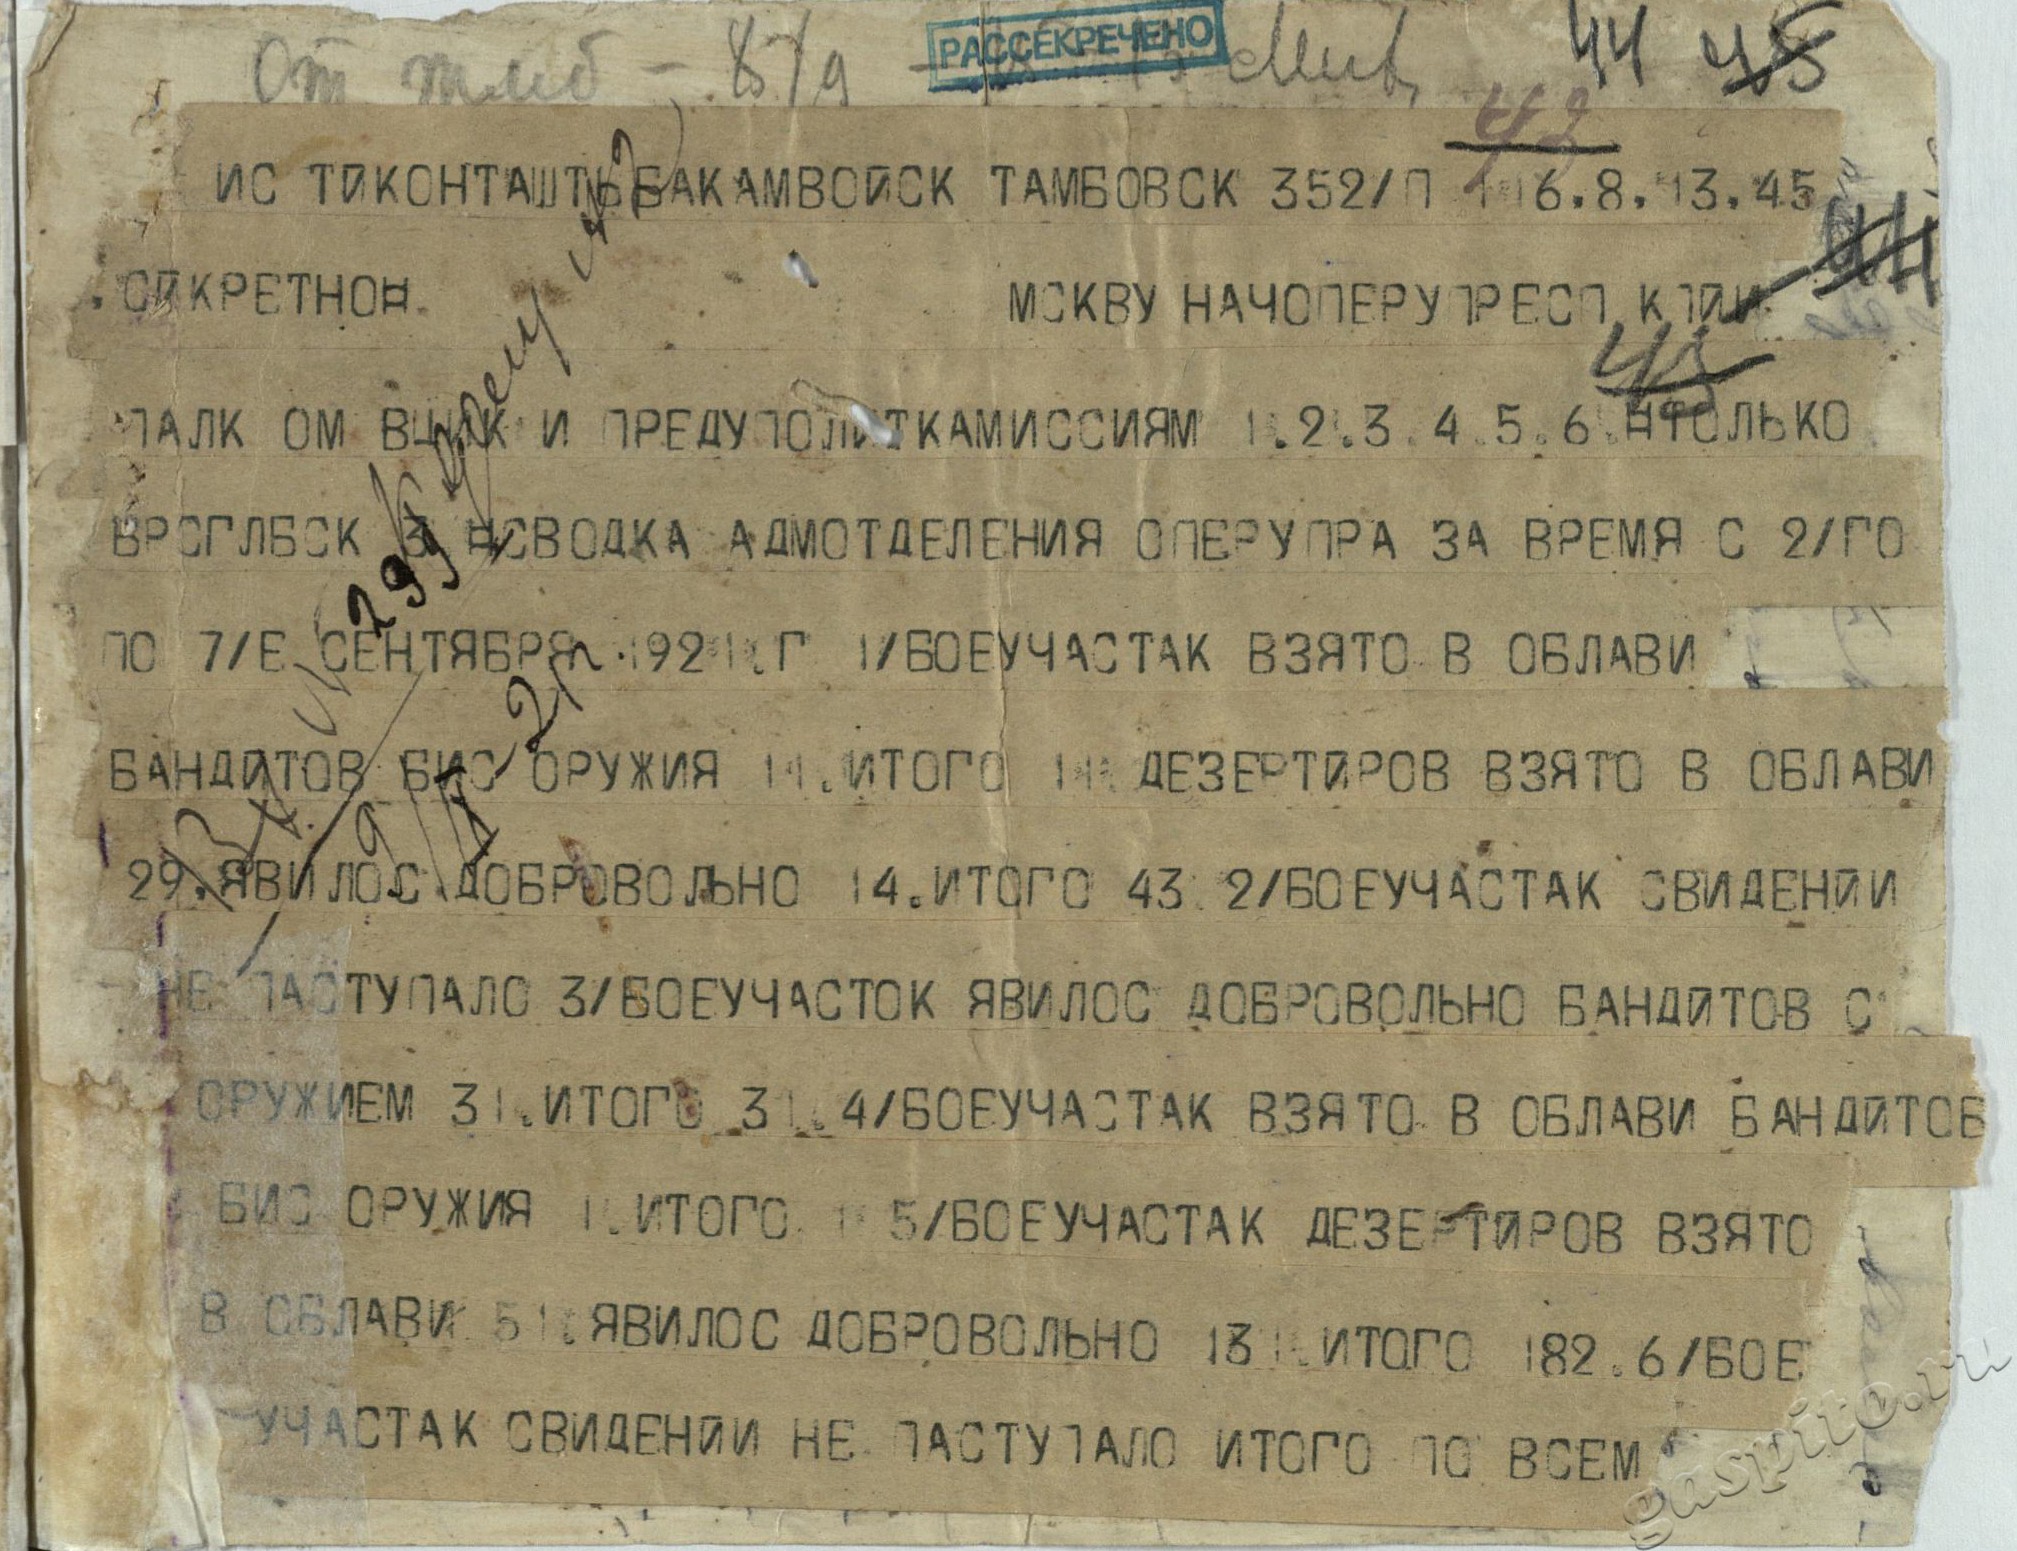 От тмб - 8/9
РАССЕКРЕЧЕНО
44 45
43
ИС ТЙКОНТАШТЬБАКАМВОЙСК ТАМБОВСК 352/П 16.8.13.45
СЙКРЕТНОН МСКВУ НАЧОПЕРУПРЕСП КПЙИ
44
43
ПАЛК ОМ ВЦИК И ПРЕДУПОЛИТКАМИССИЯМ 1.2.3 4.5.6.НТОЛЬКО
ВРСГЛБСК 3 НСВОДКА АДМОТДЕЛЕНИЯ ОПЕРУПРА ЗА ВРЕМЯ С 2/ГО
ПО 7/Е СЕНТЯБРЯ 1921.Г 1/БОЕУЧАСТАК ВЗЯТО В ОБЛАВИ
БАНДЙТОВ БИС ОРУЖИЯ 11.ИТОГО 11 ДЕЗЕРТЙРОВ ВЗЯТО В ОБЛАВИ
29.ЯВИЛОС ДОБРОВОЛЬНО 14.ИТОГО 43 2/БОЕУЧАСТАК СВИДЕНЙИ
НЕ ПАСТУПАЛО 3/БОЕУЧАСТОК ЯВИЛОС ДОБРОВОЛЬНО БАНДЙТОВ С
ОРУЖИЕМ 31.ИТОГО 31.4/БОЕУЧАСТАК ВЗЯТО В ОБЛАВИ БАНДЙТОВ
БИС ОРУЖИЯ 1.ИТОГО 1 5/БОЕУЧАСТАК ДЕЗЕРТЙРОВ ВЗЯТО
В ОБЛАВИ 51.ЯВИЛОС ДОБРОВОЛЬНО 131.ИТОГО 182.6/БОЕ
УЧАСТАК СВИДЕНЙИ НЕ ПАСТУПАЛО ИТОГО ПО ВСЕМ
gaspito.ru